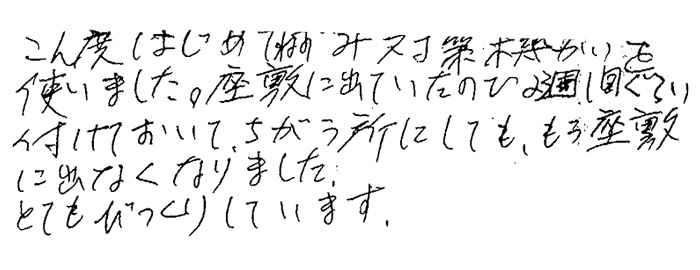 こん度はじめてねずみ対策機械を
使いました。座敷に出ていたので2週間ぐらい
付けておいて、ちがう所にしても、もう座敷
に出なくなりました。
とてもびっくりしています。